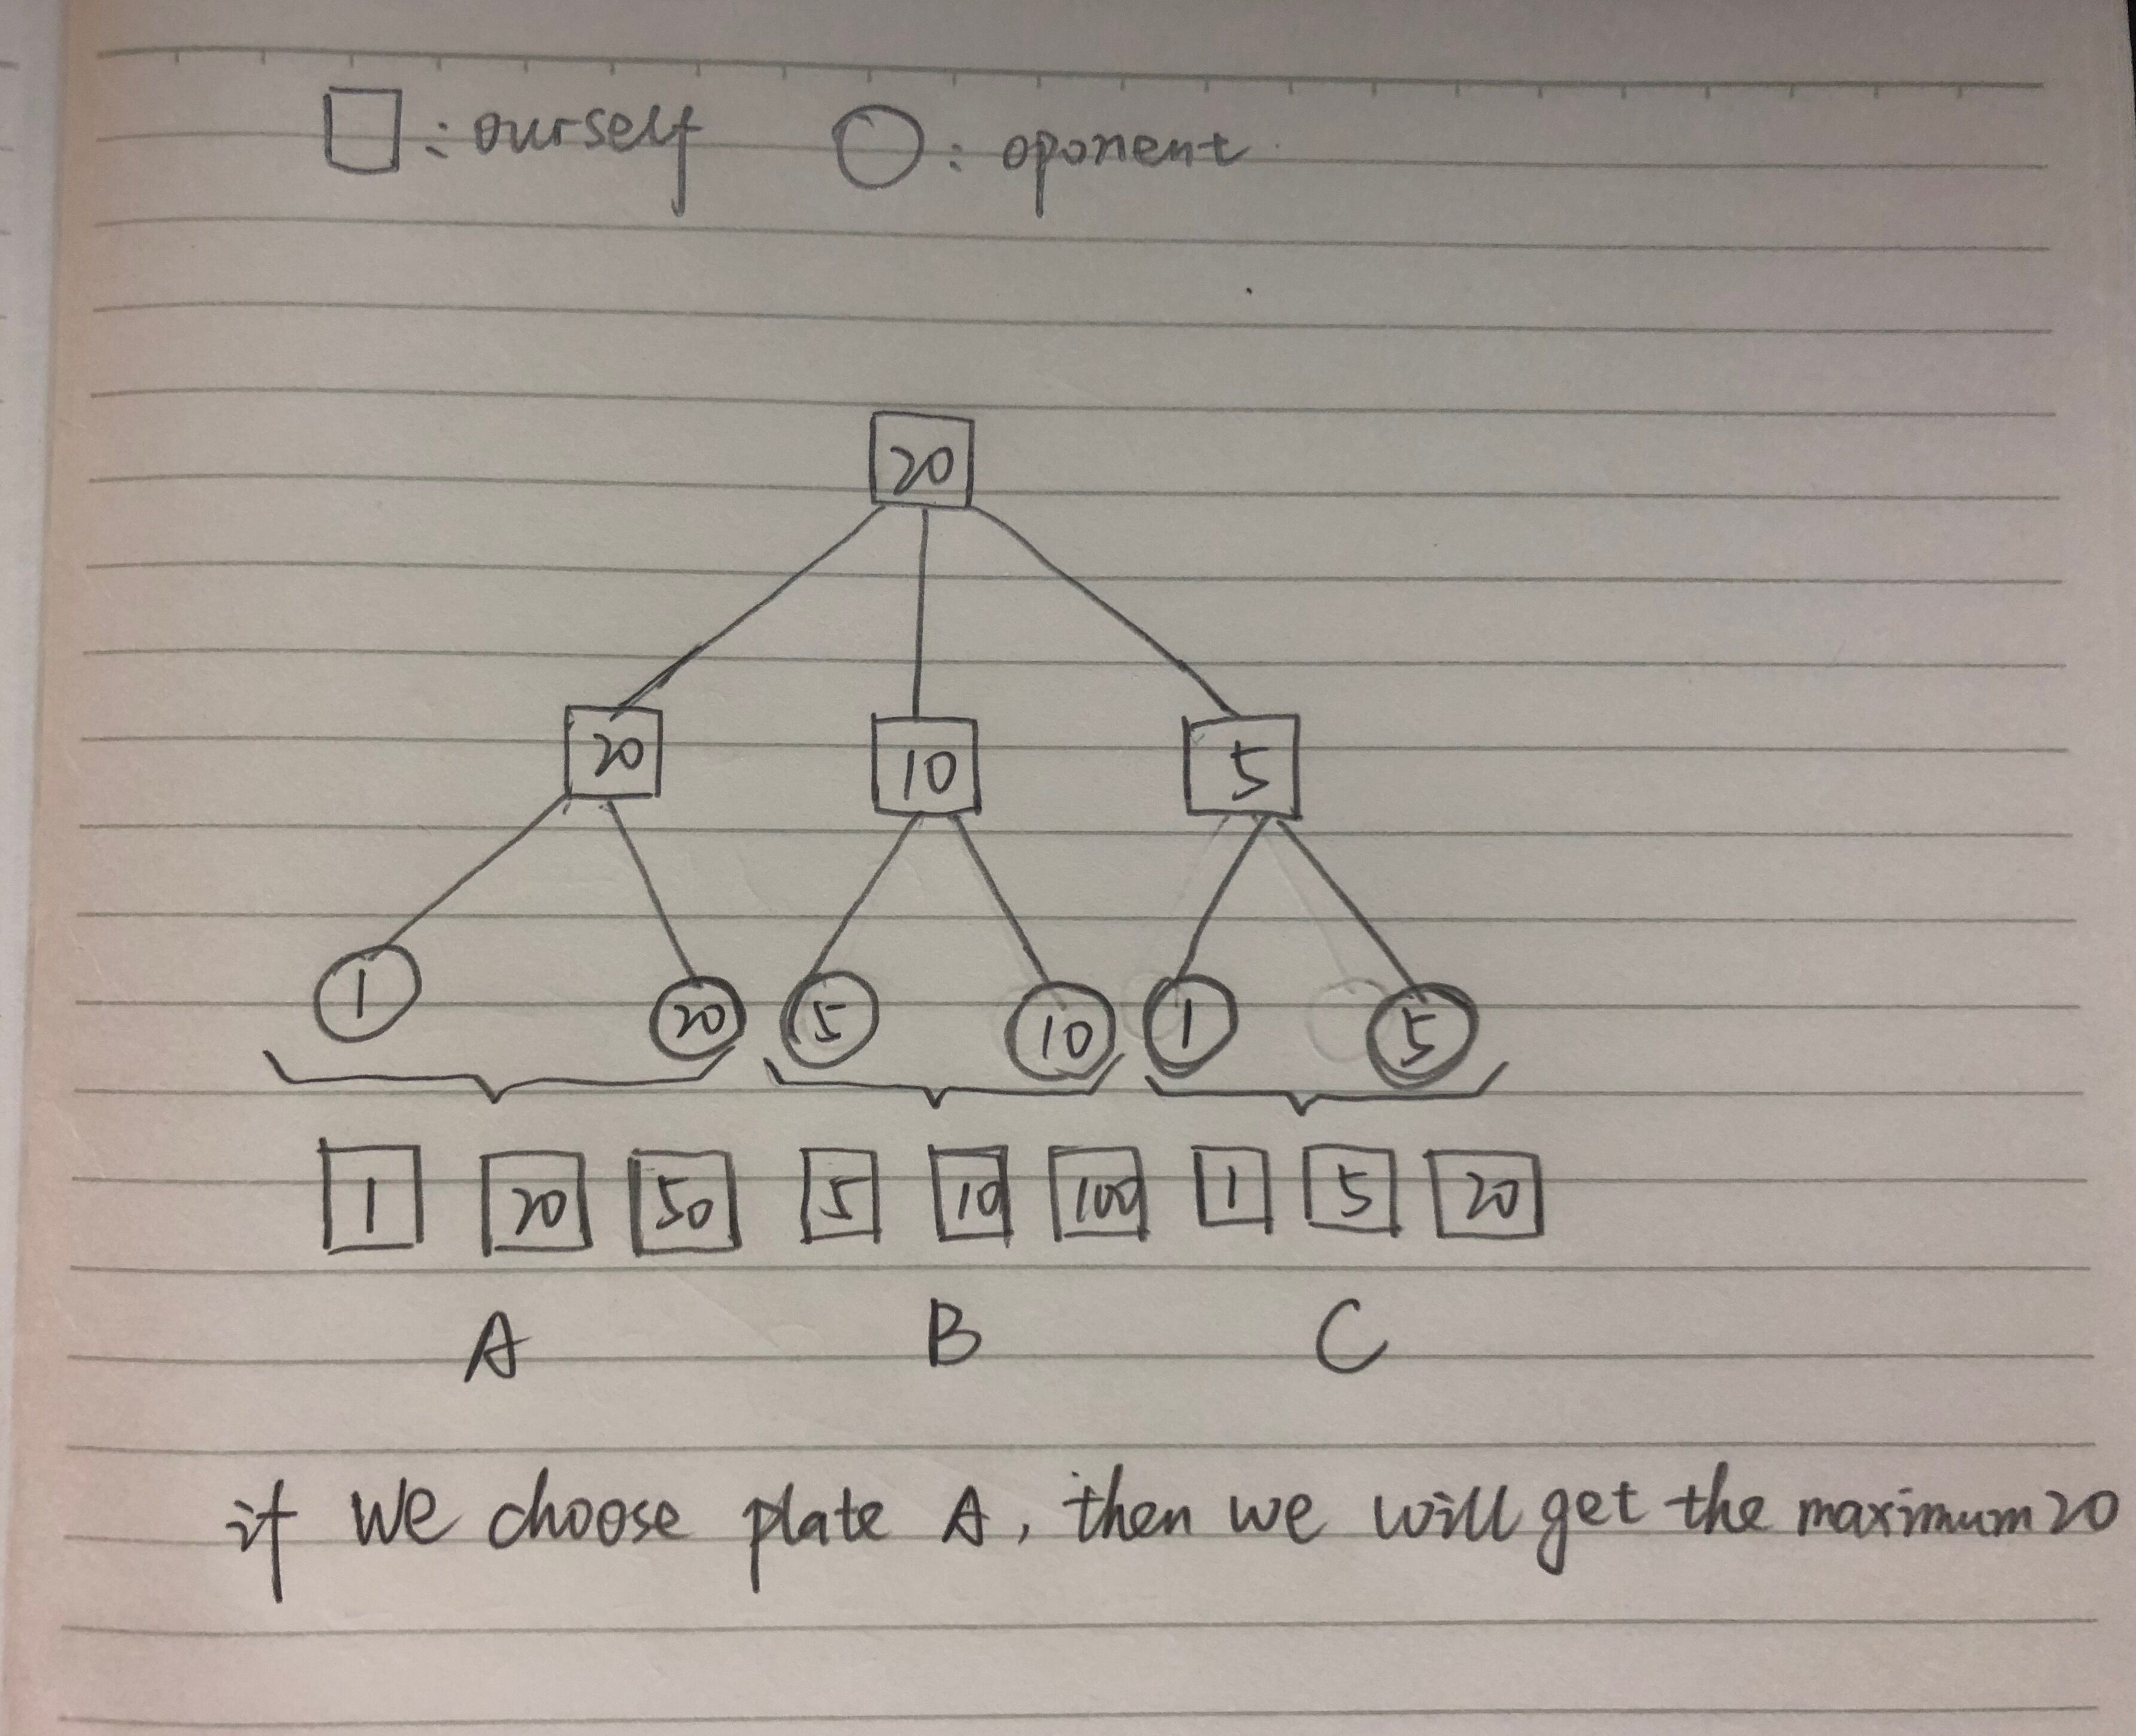 : ourself : oponent
20
20 10 5
1 20 5 10 1 5
1 20 50 5 10 100 1 5 20
A B C
if we choose plate A, then we will get the maximum 20